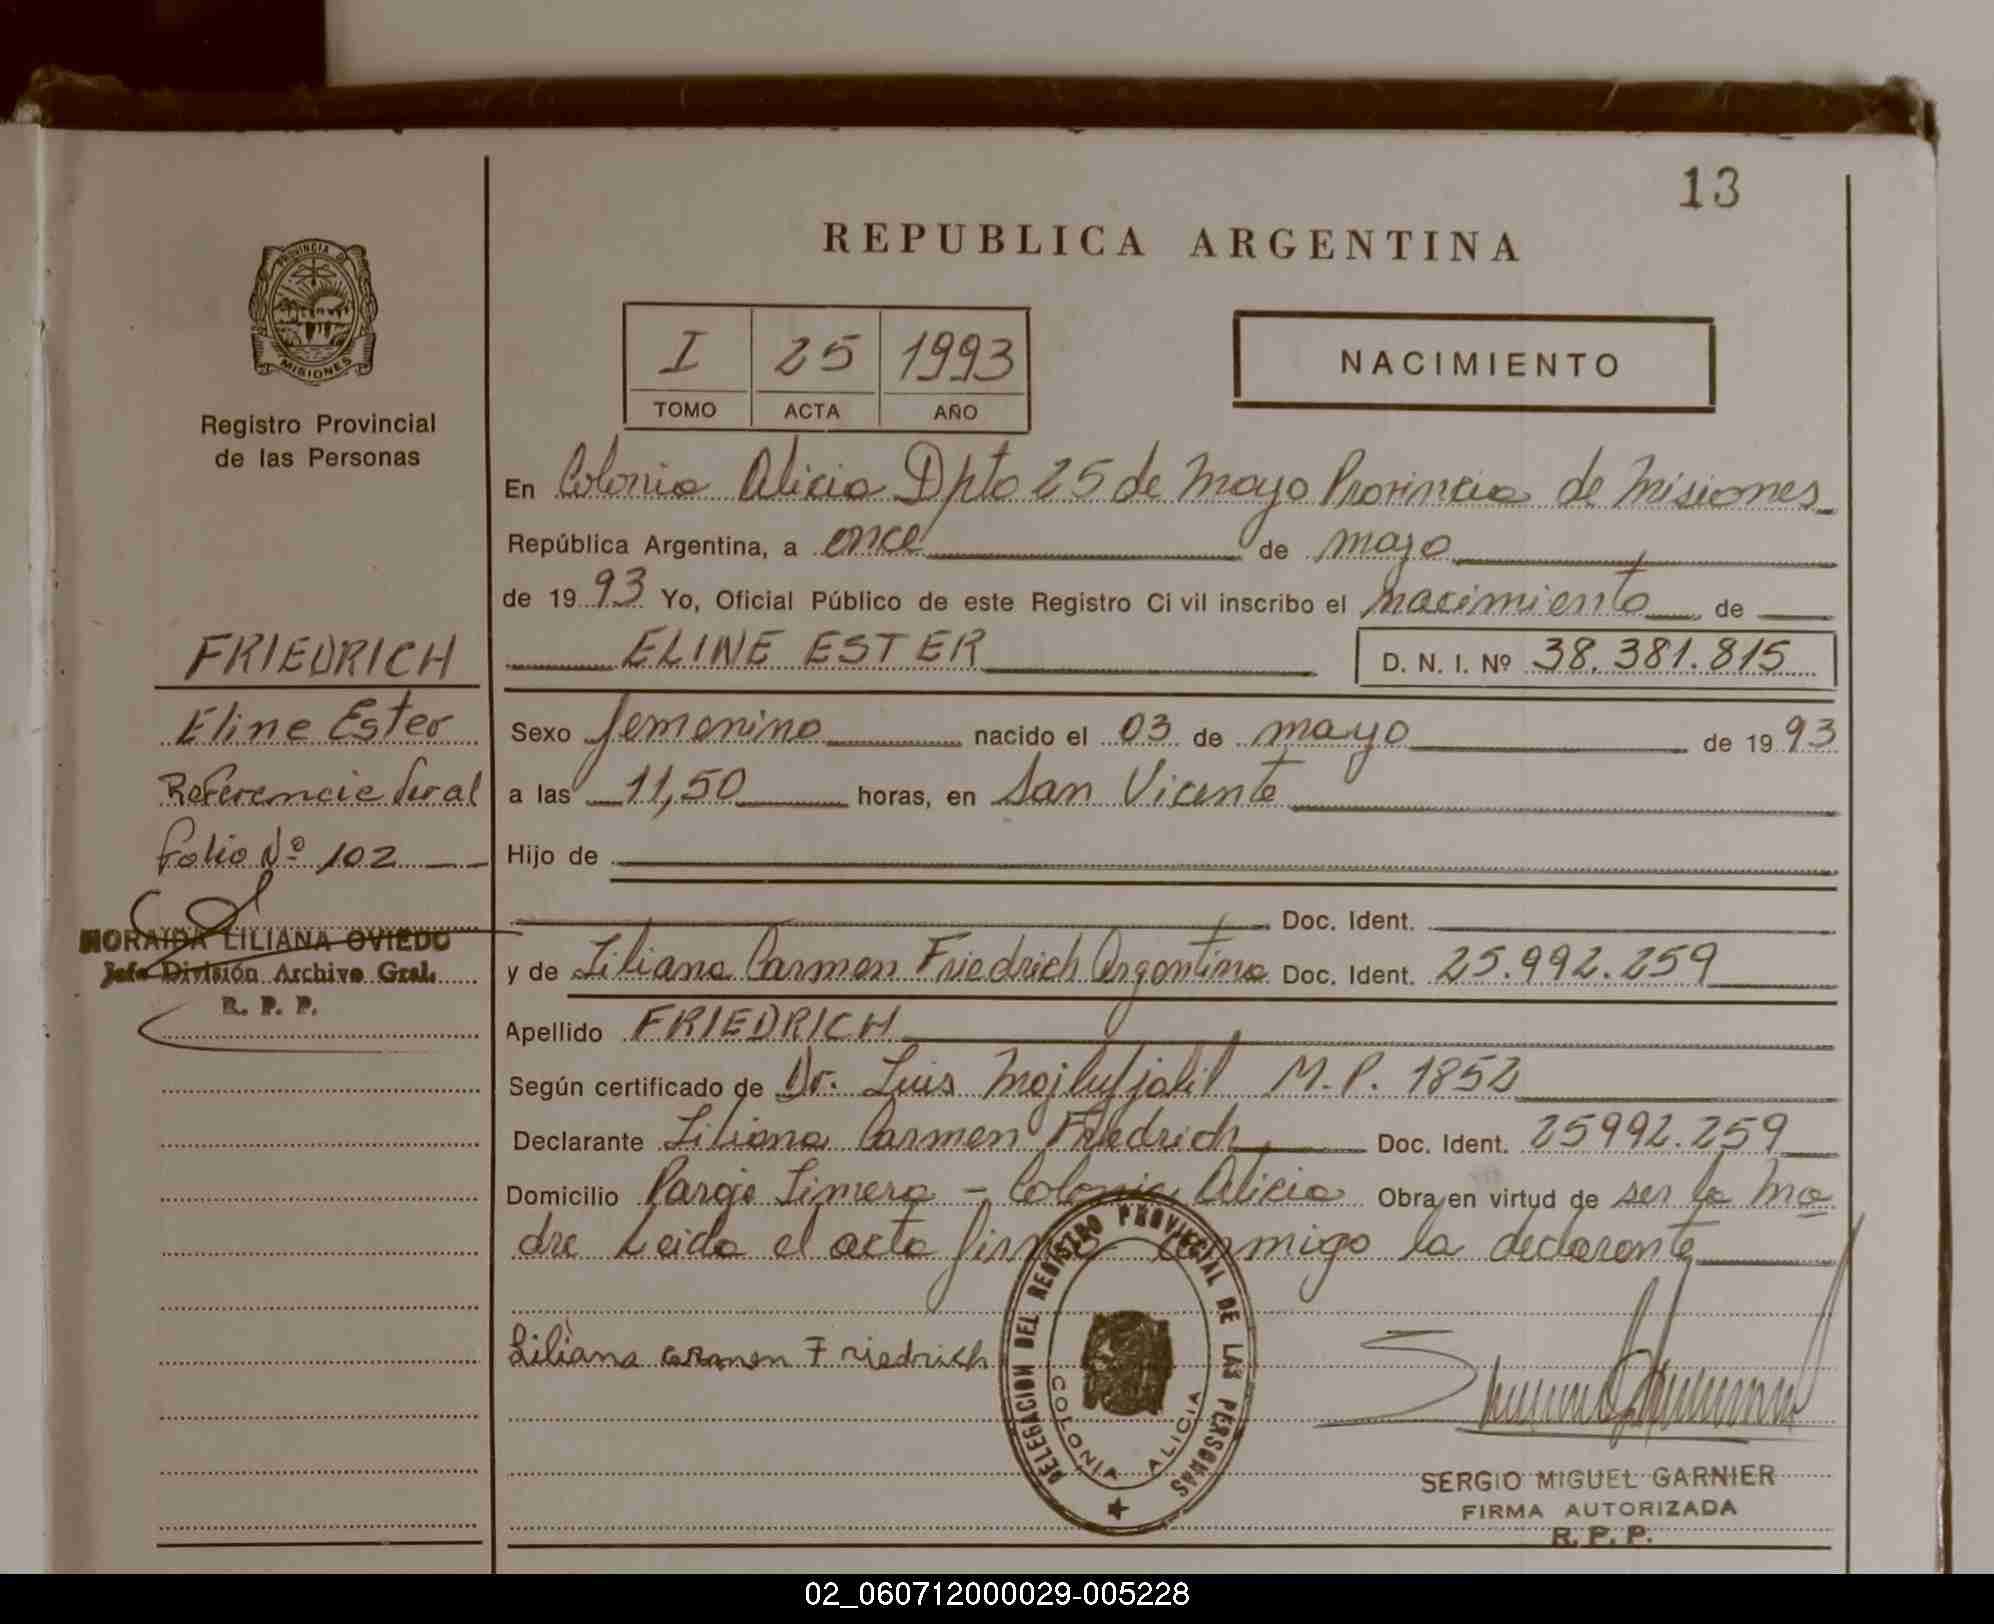 13
REPUBLICA ARGENTINA
PROVINCIA DE
MISIONES
Registro Provincial
de las Personas
I 25 1993
TOMO ACTA AÑO
NACIMIENTO
En Colonia Alicia Dpto 25 de Mayo Provincia de Misiones
República Argentina, a once de mayo
de 1993 Yo, Oficial Público de este Registro Ci vil inscribo el nacimiento de
ELINE ESTER D. N. I. Nº 38.381.815
Sexo femenino nacido el 03 de mayo de 1993
a las 11,50 horas, en San Vicente
Hijo de
Doc. Ident.
y de Liliana Carmen Friedrich Argentina Doc. Ident. 25.992.259
Apellido FRIEDRICH
Según certificado de Dr. Luis M.P. 1852
Declarante Liliana Carmen Friedrich Doc. Ident. 25992.259
Domicilio Colonia Alicia Obra en virtud de ser la ma
dre Leida el acta firma conmigo la declarante
Liliana carmen Friedrich
DELEGACION DEL REGISTRO PROVINCIAL DE LAS PERSONAS
COLONIA ALICIA
SERGIO MIGUEL GARNIER
FIRMA AUTORIZADA
R. P. P.
FRIEDRICH
Eline Ester
Referencia
folio Nº 102
LILIANA OVIEDO
Jefe División Archivo Gral.
R. P. P.
02_060712000029-005228